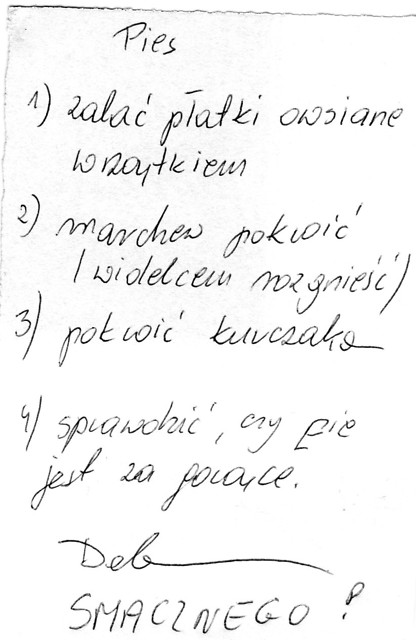 Pies
1) zalać płatki owsiane
wrzątkiem
2) marchew pokroić
(widelcem rozgnieść)
3) pokroić kurczaka
4) sprawdzić, czy nie
jest za gorące.
SMACZNEGO!